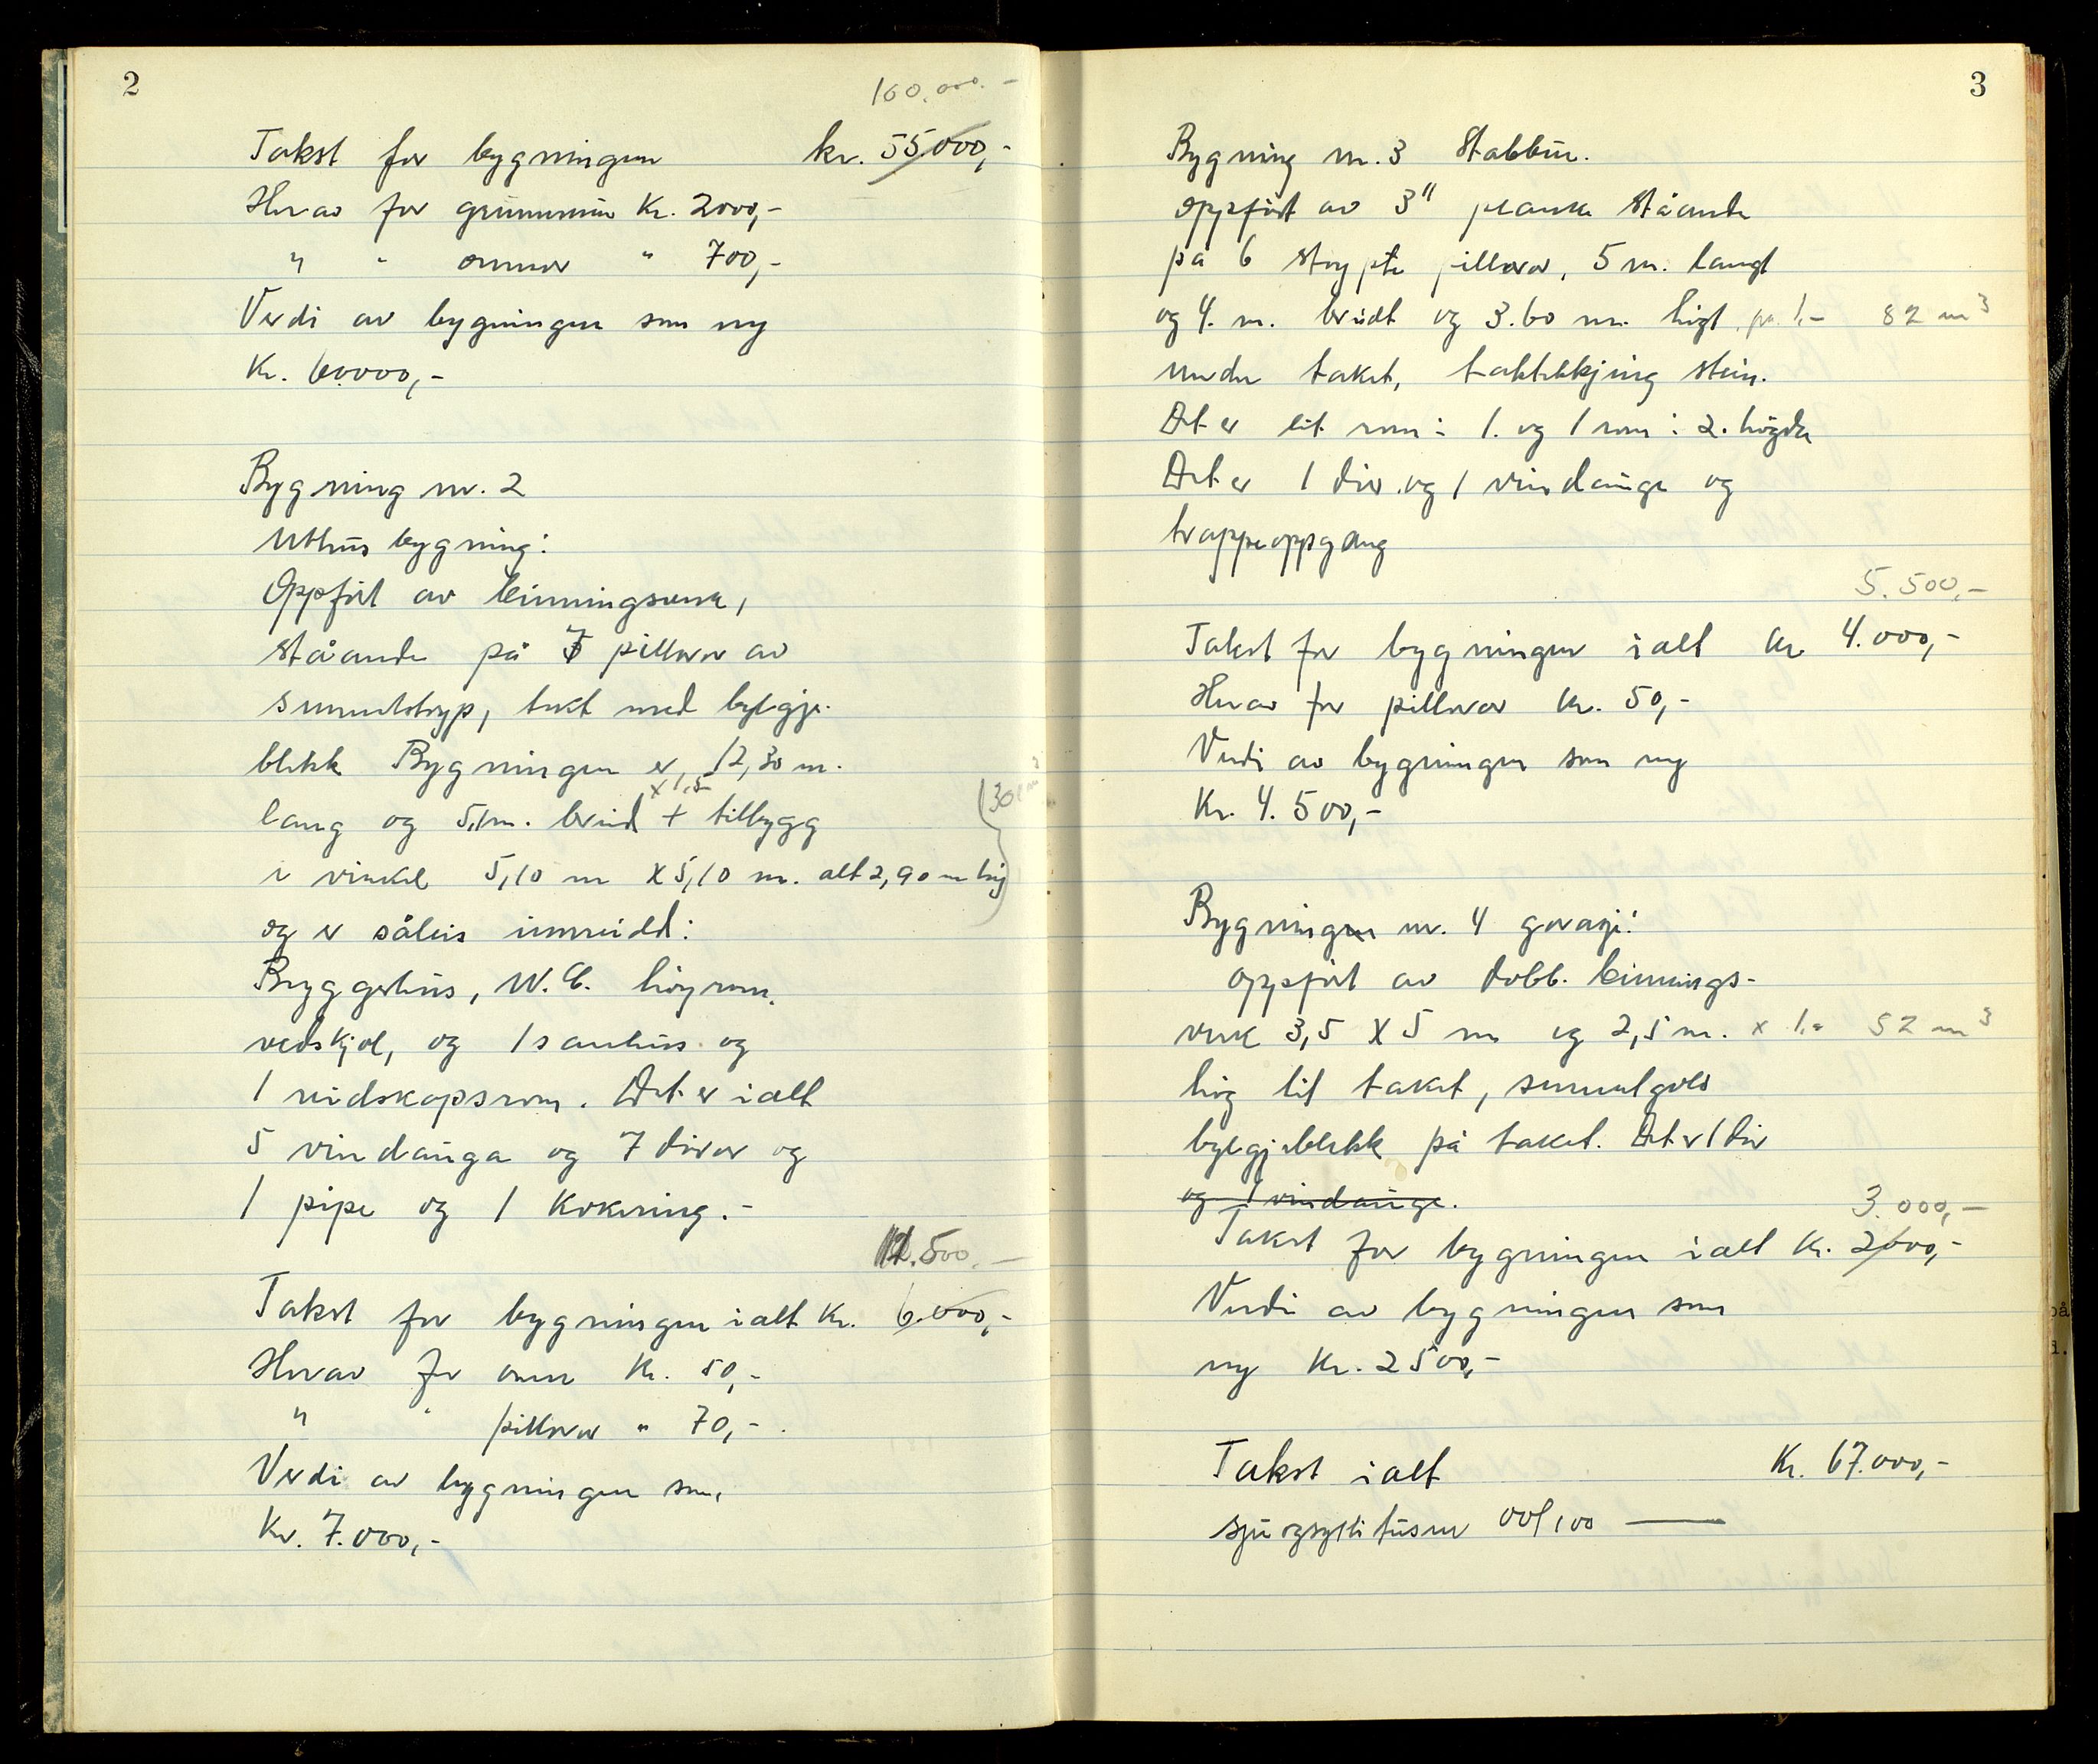 2
160.000.-
Takst for bygningen kr. 55.000,-
Herav for grunnmur Kr. 2000,-
" " omner " 700,-
Verdi av bygningen som ny
Kr. 60.000,-
Bygning nr. 2
Uthus bygning:
Oppført av binningsverk,
ståande på 7 pillarar av
sementstøyp, tekt med bylgje-
blekk Bygningen er 12,30 m.
x 1,5
lang og 5,1 m. breid + tilbygg
i vinkel 5,10 m X 5,10 m. alt 2,90 m høg
og er såleis innreidd:
Bryggerhus, W.C. høyrom,
vedskjol, og 1 sauhus og
1 reidskapsrom. Det er i alt
5 vindauga og 7 dører og
1 pipe og 1 Kokering.-
12.500.-
Takst for bygningen ialt Kr. 6.000,-
Herav for omn Kr. 50,-
" " pillarar " 70,-
Verdi av bygningen som
Kr. 7.000,-
3
Bygning nr. 3 Stabbur.
oppført av 3" plank ståande
på 6 støypte pillarar, 5 m. langt
og 4. m. breidt og 3.60 m. høgt 82 m3
under taket, taktekkjing stein.
Det er eit rom i 1. og 1 rom i 2. høgda
Det er 1 dør og 1 vindauge og
trappeoppgang
5.500,-
Takst for bygningen ialt kr 4.000,-
Herav for pillarar kr. 50,-
Verdi av bygningen som ny
Kr. 4.500,-
Bygningen nr. 4 garasje:
oppført av dobb. binnings-
verk 3,5 X 5 m og 2,5 m. 52 m3
høg til taket, sementgolv
bylgjeblekk på taket. Det er 1 dør
og 1 vindauge.
3.000,-
Takst for bygningen ialt Kr. 2000,-
Verdi av bygningen som
ny Kr. 2500,-
Takst ialt Kr. 67.000,-
sju og sytti tusen 00/100